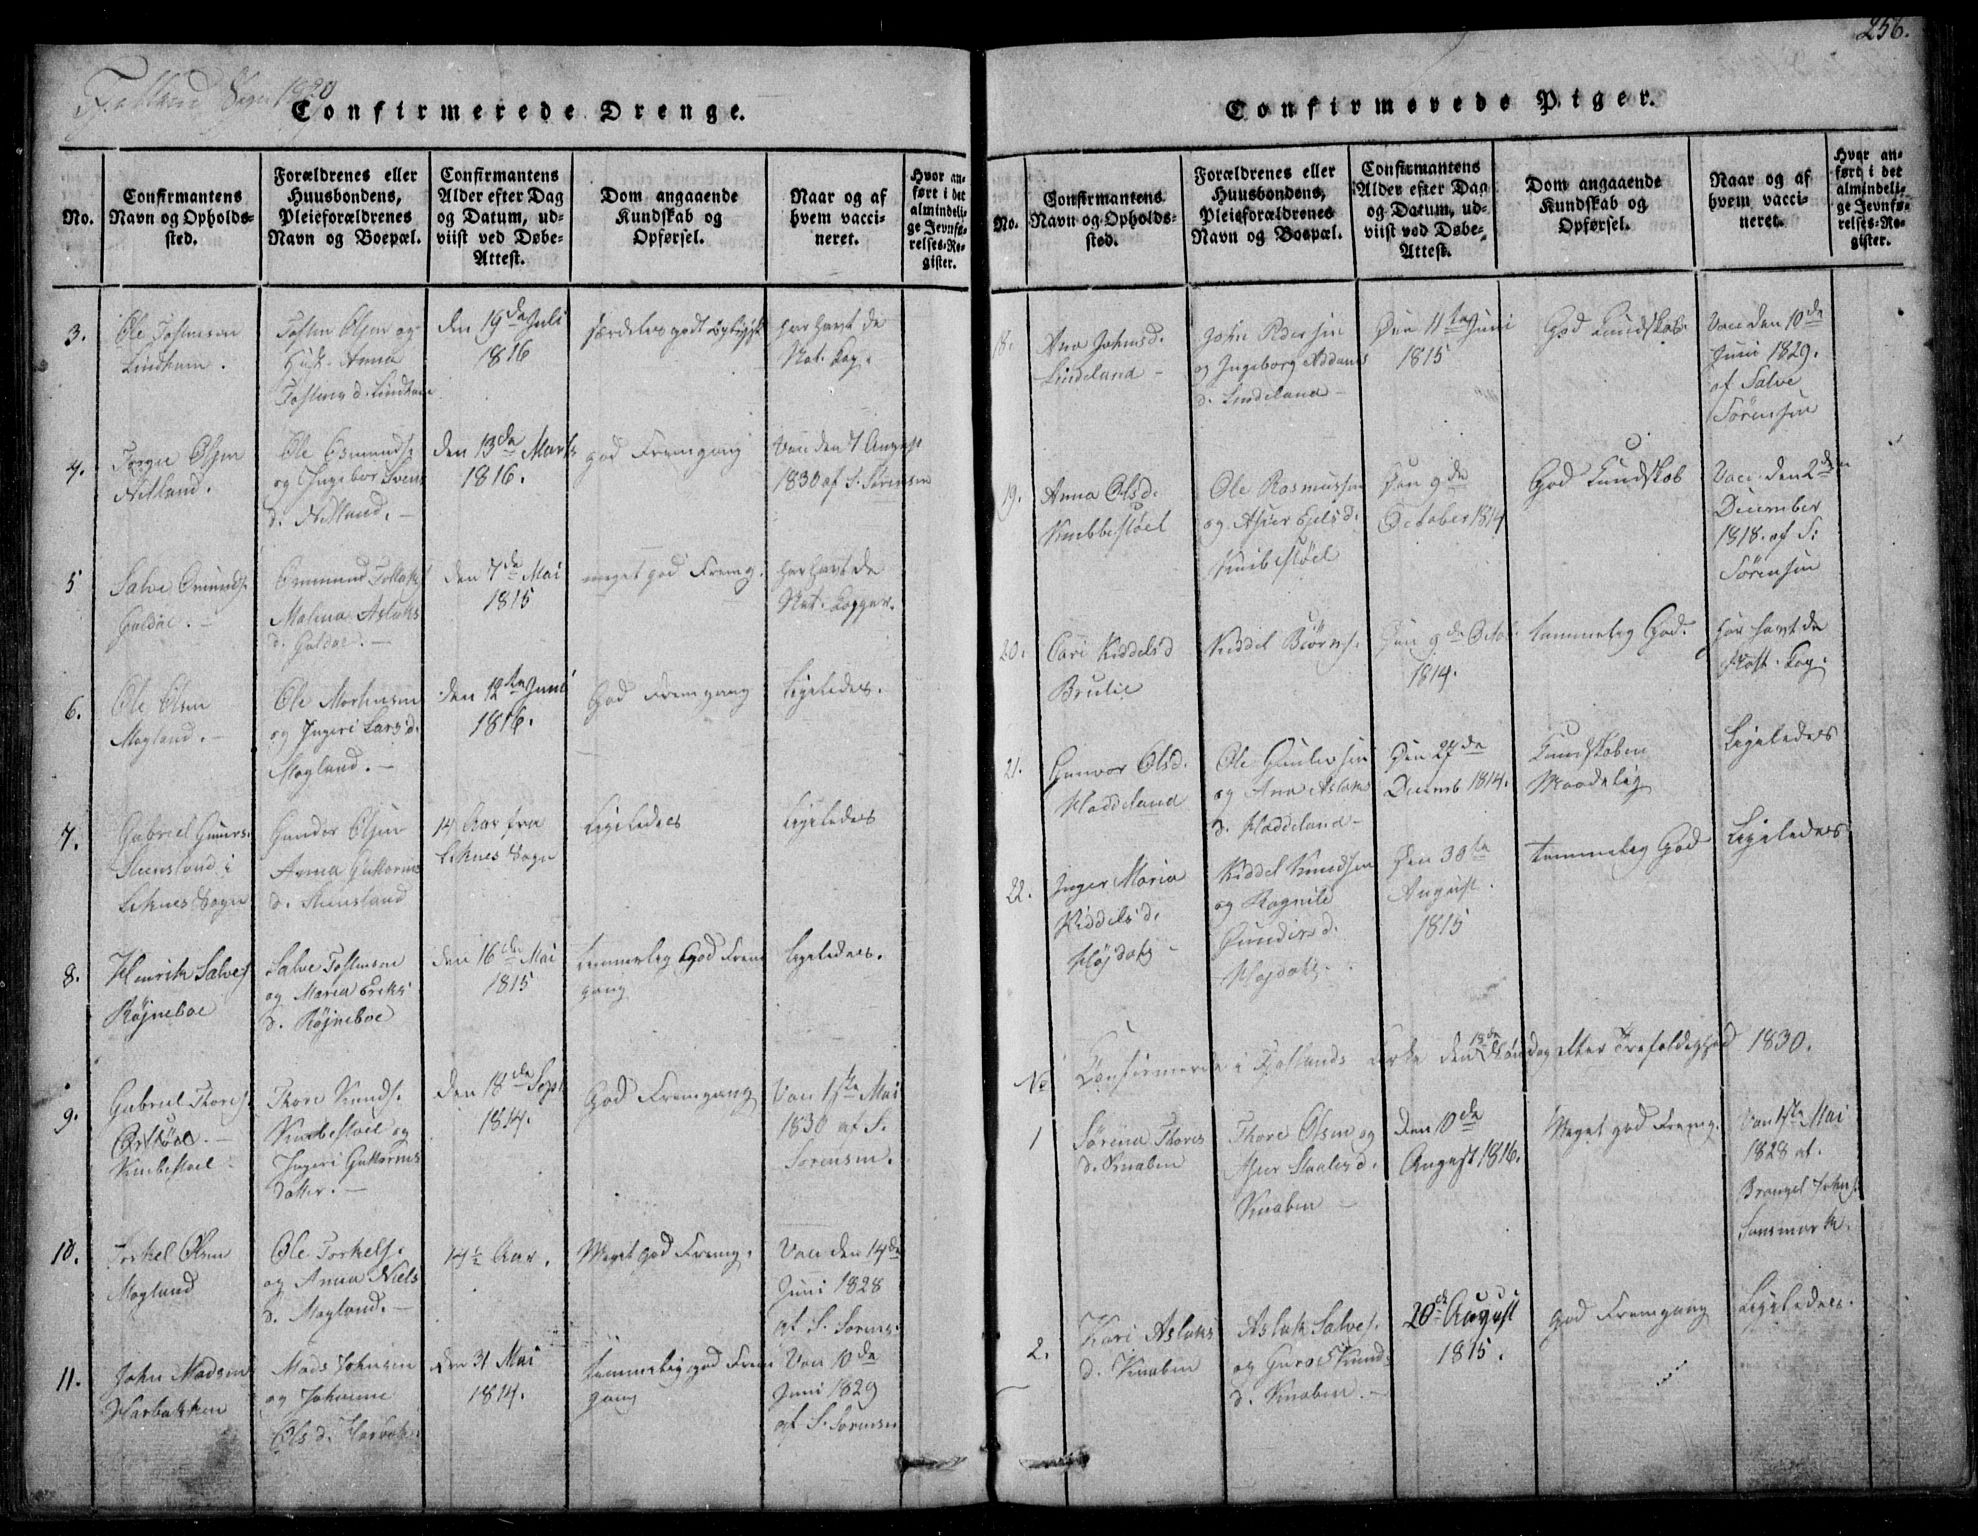 256.
Confirmerede Drenge.
No.
Confirmantens
Navn og Opholds-
sted.
Forældrenes eller
Huusbondens,
Pleieforældrenes
Navn og Boepæl.
Confirmantens
Alder efter Dag
og Datum, ud-
viist ved Døbe-
Attest.
Dom angaaende
Kundskab og
Opførsel.
Naar og af
hvem vacci-
neret.
Hvor an-
ført i det
almindeli-
ge Jevnfø-
relses-Re-
gister.
3.
Ole Tostensen
Lindham.
Tosten Olsen og
Anna
den 19de Juli
1816
særdeles godt
har havt de
Nat. Kop.
4.
Olsen
Netland.
Ole Osmunds.
og Ingebor Svens
d. Netland.
den 13de Marts
1816.
god Fremgang
Vac den 7 August
1830 af S. Sørensen
5
Salve Omunds.
Galdal.
Ommund
Malina Aslaks
d. Galdal.
den 7de Mai
1815
meget god Fremg.
har havt de
Nat. Kopper.
6.
Ole Olsen
Mogland.
Ole Mortensen
og Ingeri Lars d.
Mogland.
den 12te Juni
1816.
God Fremgang
Ligeledes.
7.
Gabriel Guners.
Steensland i
Sogn
Gunder Olsen
Anna Guttorms
d. Steensland
14 Aar fra
Sogn
Ligeledes
Ligeledes
8.
Henrik Salves.
Røjneboe
Salve Tostensen
og Maria Eriks
d. Røjneboe
den 16de Mai
1815
temmelig god Frem
gang
Ligeledes.
9.
Gabriel Thores.
Knibestoel
Thore Knuds.
Knibestoel og
Ingeri Guttorms
datter.
den 18de Sept
1814.
God Fremgang
Vac 1ste Mai
1830 af S.
Sørensen.
10.
Torkel Olsen
Mogland
Ole Torkels.
og Anna Niels
d. Mogland.
14½ Aar.
Meget god Fremg.
Vac den 14de
Juni 1828
af S. Sørens.
11.
John Madsen
Harbakken
Mads Johnsen
og Johanne
Ols d.
den 31 Mai
1814.
temmelig god Frem
gang
Vac 10de
Juni 1829
af S. Sørensen
Confirmerede Piger.
No.
Confirmantens
Navn og Opholds-
sted.
Forældrenes eller
Huusbondens,
Pleieforældrenes
Navn og Boepæl.
Confirmantens
Alder efter Dag
og Datum, ud-
viist ved Døbe-
Attest.
Dom angaaende
Kundskab og
Opførsel.
Naar og af
hvem vacci-
neret.
Hvor an-
ført i det
almindeli-
ge Jevnfø-
relses-Re-
gister.
18.
Ana Johnsd.
Lindeland
John Pedersen
og Ingeborg Addams
d. Lindeland
Den 11te Juni
1815
God Kundskab.
Vac den 10de
Juni 1829.
af Salve
Sørensen
19.
Anna Olsd.
Knibbestøel
Ole Rasmussen
og Asser Eiels d.
Knibestøel
Den 9de
October 1814
God Kundskab
Vac. den 2den
December
1818. af S:
Sørensen
20.
Cari Kiddelsd
Brulie
Kiddel Biørns.
Den 9de Octob.
1814.
temmelig God.
har havt de
Nat. Kop.
21.
Gunvor Olsd.
Haddeland
Ole Gunlevsen
og Ana Aslaks
d. Haddeland
Den 27de
Decemb 1814.
Kundskaben
Maadelig
Ligeledes
22.
Inger Maria
Kiddelsd.
Kiddel Knudsen
og Ragnile
Gunders d.
Den 30te
August.
1815
temmelig God
Ligeledes
No
Confirmerede i Fjotlands Kirke den 18de Søndag efter Trefoldighed 1830.
1
Sørena Thores
d. Knaben
Thore Olsen og
Asser Staales d.
Knaben
Den 10de
August 1816.
Meget god Fremg.
Vac 4de Mai
1828 af.
Johns.
2.
Kari Aslaks
d. Knaben
Aslak Salves.
og Guroe Knuds
d. Knaben.
20de August
1815.
god Fremgang
Ligeledes.